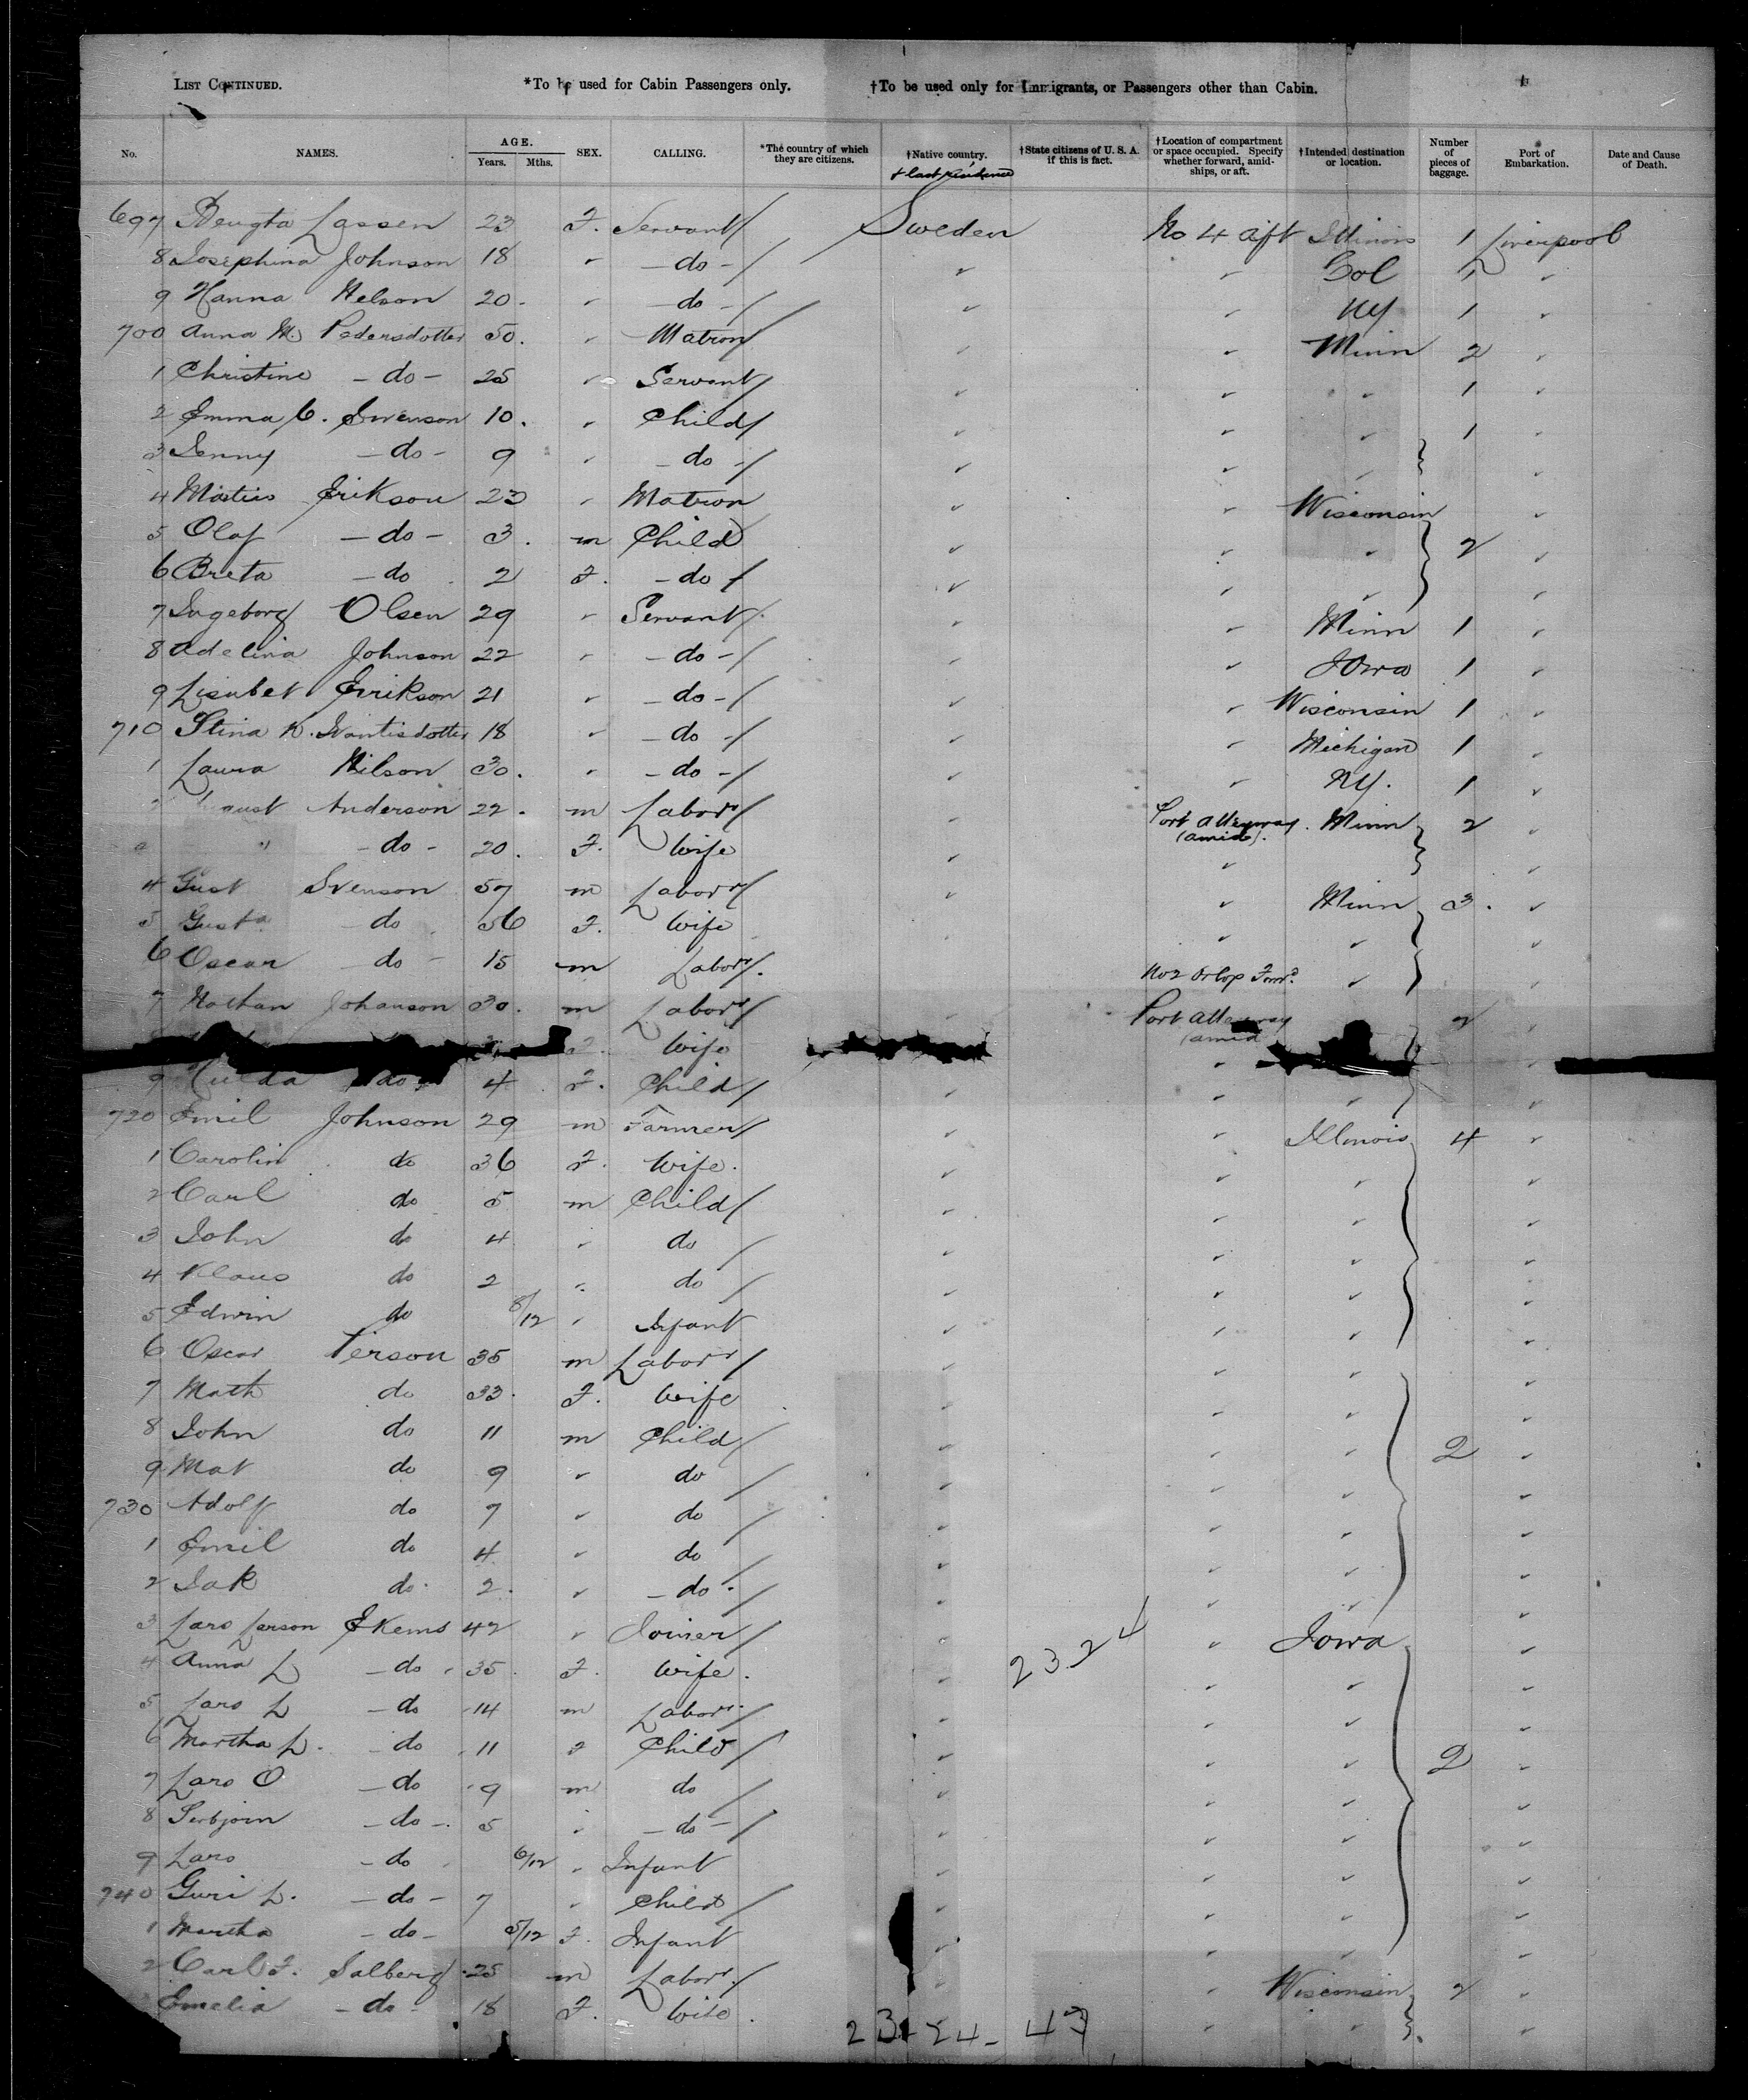 LIST CONTINUED. *To be used for Cabin Passengers only. †To be used only for Immigrants, or Passengers other than Cabin.
No. NAMES. AGE. Years. Mths. SEX. CALLING. *The country of which they are citizens. †Native country. & last residence †State citizens of U. S. A. if this is fact. †Location of compartment or space occupied. Specify whether forward, amidships, or aft. †Intended destination or location. Number of pieces of baggage. Port of Embarkation. Date and Cause of Death.
697 Bengta Lassen 23 F. Servant Sweden No 4 aft Illinois 1 Liverpool
8 Josephina Johnson 18 " - do - " " Col 1 "
9 Hanna Nelson 20 " - do - " " NY 1 "
700 Anna M. Pedersdotter 50. " Matron " " Minn 2 "
1 Christine - do - 25 " Servant " " " 1 "
2 Emma C. Swenson 10. " Child " " " 1 "
3 Jenny - do - 9 " - do - " " " "
4 Erikson 23 " Matron " " Wisconsin "
5 Olaf - do - 3. m Child " " " 2 "
6 Breta - do 2 F. - do - " " " "
7 Ingeborg Olsen 29 " Servant " " Minn 1 "
8 Adelina Johnson 22 " - do - " " Iowa 1 "
9 Lisabet Erikson 21 " - do - " " Wisconsin 1 "
710 Stina K. 18 " - do - " " Michigan 1 "
1 Laura Nilson 30. " - do - " " NY. 1 "
Anderson 22. m Labor " Port Alleyway (amid). Minn 2 "
" - do - 20. F. Wife " " "
4 Gust Svenson 57 m Labor " " Minn 3. "
5 Gusta do 56 F. Wife " " " "
6 Oscar - do - 15 m Labor. No 2 Orlop Forwd. " "
7 Nathan Johanson 30. m Labor " Port Alleyway (amid 2 "
F. Wife "
9 Hulda do 4 F. Child " " " "
720 Emil Johnson 29 m Farmer " " Illinois 4 "
1 Carolin do 36 F. Wife. " " " "
2 Carl do 5 m Child " " " "
3 John do 4 " do " " " "
4 Klaus do 2 " do " " " "
5 Edwin do 8/12 " Infant " " " "
6 Oscar Person 35 m Labor " " "
7 Math do 33. F. Wife " " " "
8 John do 11 m Child " " " 2 "
9 Mat do 9 " do " " " "
730 Adolf do 7 " do " " " "
1 Emil do 4 " do " " " "
2 Jak do 2. " - do - " " " "
3 Lars Larson Ekems 42 " Joiner " 2324 " Iowa "
4 Anna L - do 35 F. Wife. " " " "
5 Lars L - do 14 m Labor. " " " "
6 Martha L. - do 11 F Child " " " 2 "
7 Lars O - do 9 m do " " " "
8 - do - 5 " - do - " " " "
9 Lars - do 6/12 " Infant " " " "
740 Guri L. - do - 7 " Child " " "
1 Martha - do - 5/12 F. Infant " " " "
2 Carl F. Salberg 25 m Labor. " " Wisconsin 2 "
Emelia - do - 18 F. Wife. " " "
23 24 - 47